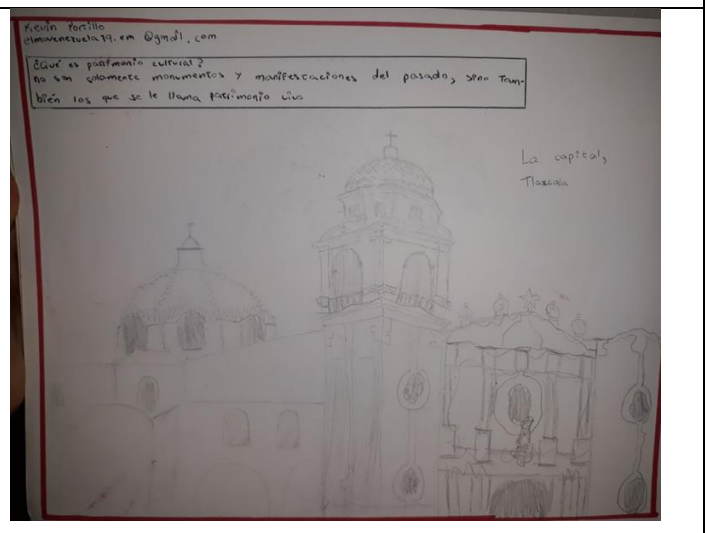 Kevin Portillo
elmavenezuela19.em @gmail.com
¿Qué es patrimonio cultural?
no son solamente monumentos y manifestaciones del pasado, sino Tam-
bién los que se le llama patrimonio vivo
La capital,
Tlaxcala